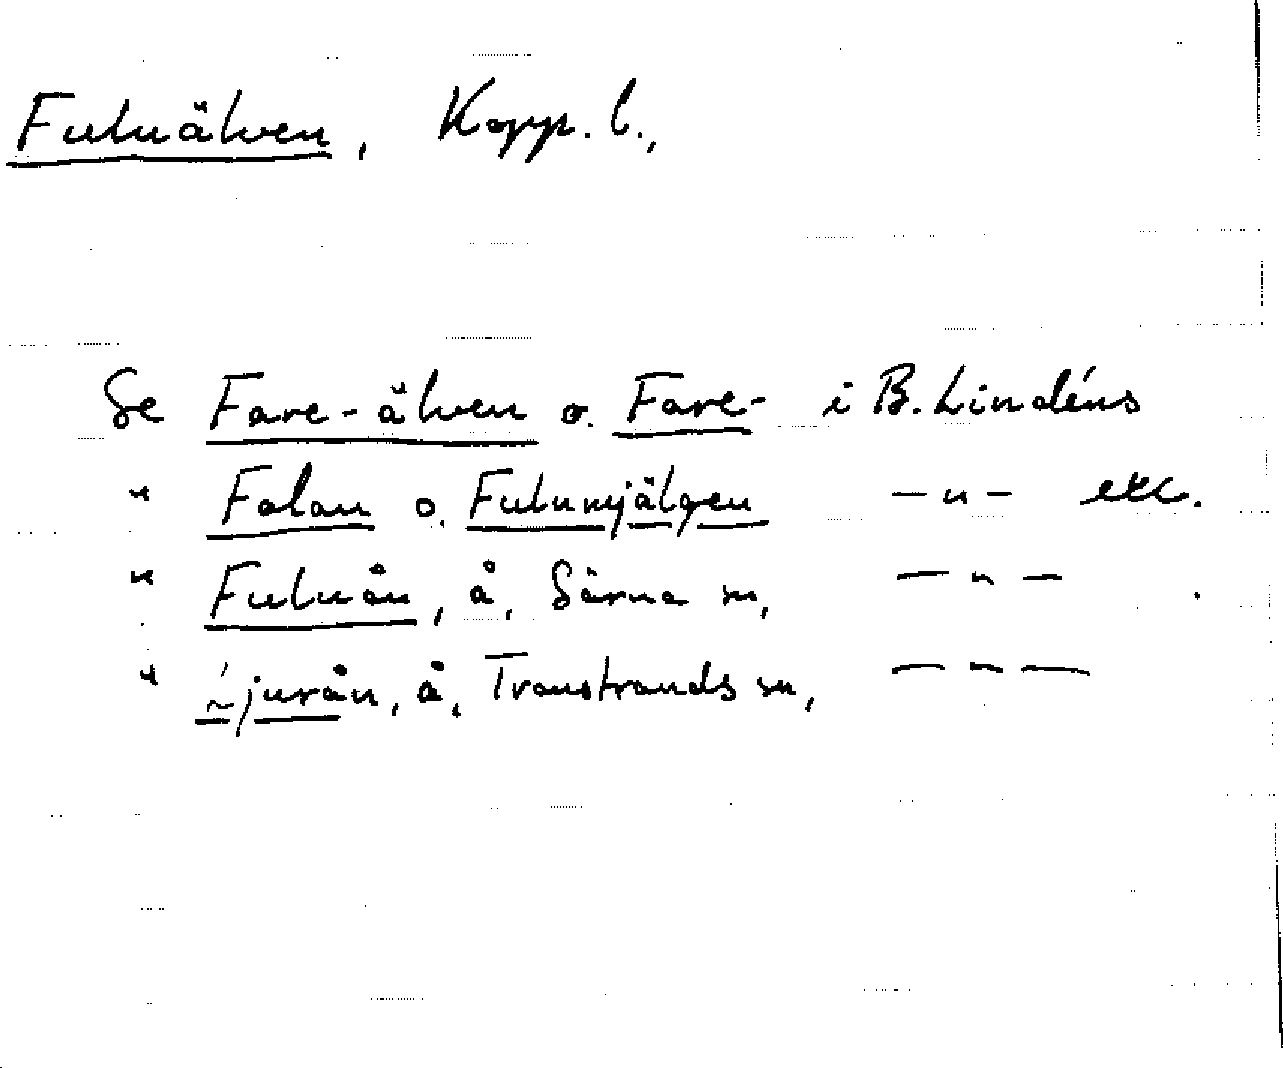 Fuluälven, Kopp. l.,
Se Fare-älven o. Fare- i B. Lindéns
" Folan o. Fulunyälgen —"— etc.
" Fuluån, å, Särna sn, —"—
jurån, å, Transtrands sn, —"—